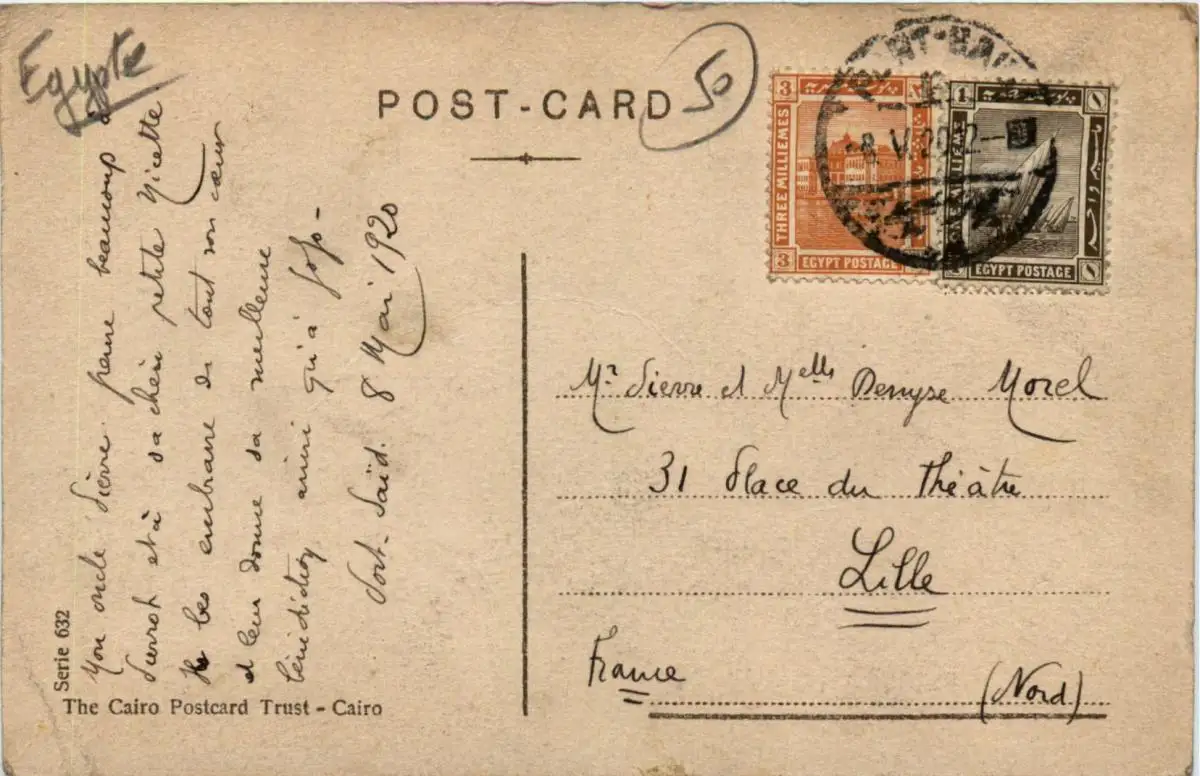 Egypte
POST-CARD
50
3 3
THREE MILLEMES
EGYPT POSTAGE
3
1
EGYPT POSTAGE
8 V 20
Mon oncle Pierre pense beaucoup à
Pierrot et à sa chère petite Nicette
Il les embrasse de tout son cœur
et leur donne sa meilleure
bénédiction ainsi qu'à Jojo-
Port-Saïd. 8 Mai 1920
Mr Pierre et Melle Denyse Morel
31 Place du Théâtre
Lille
France (Nord)
Serie 632
The Cairo Postcard Trust - Cairo